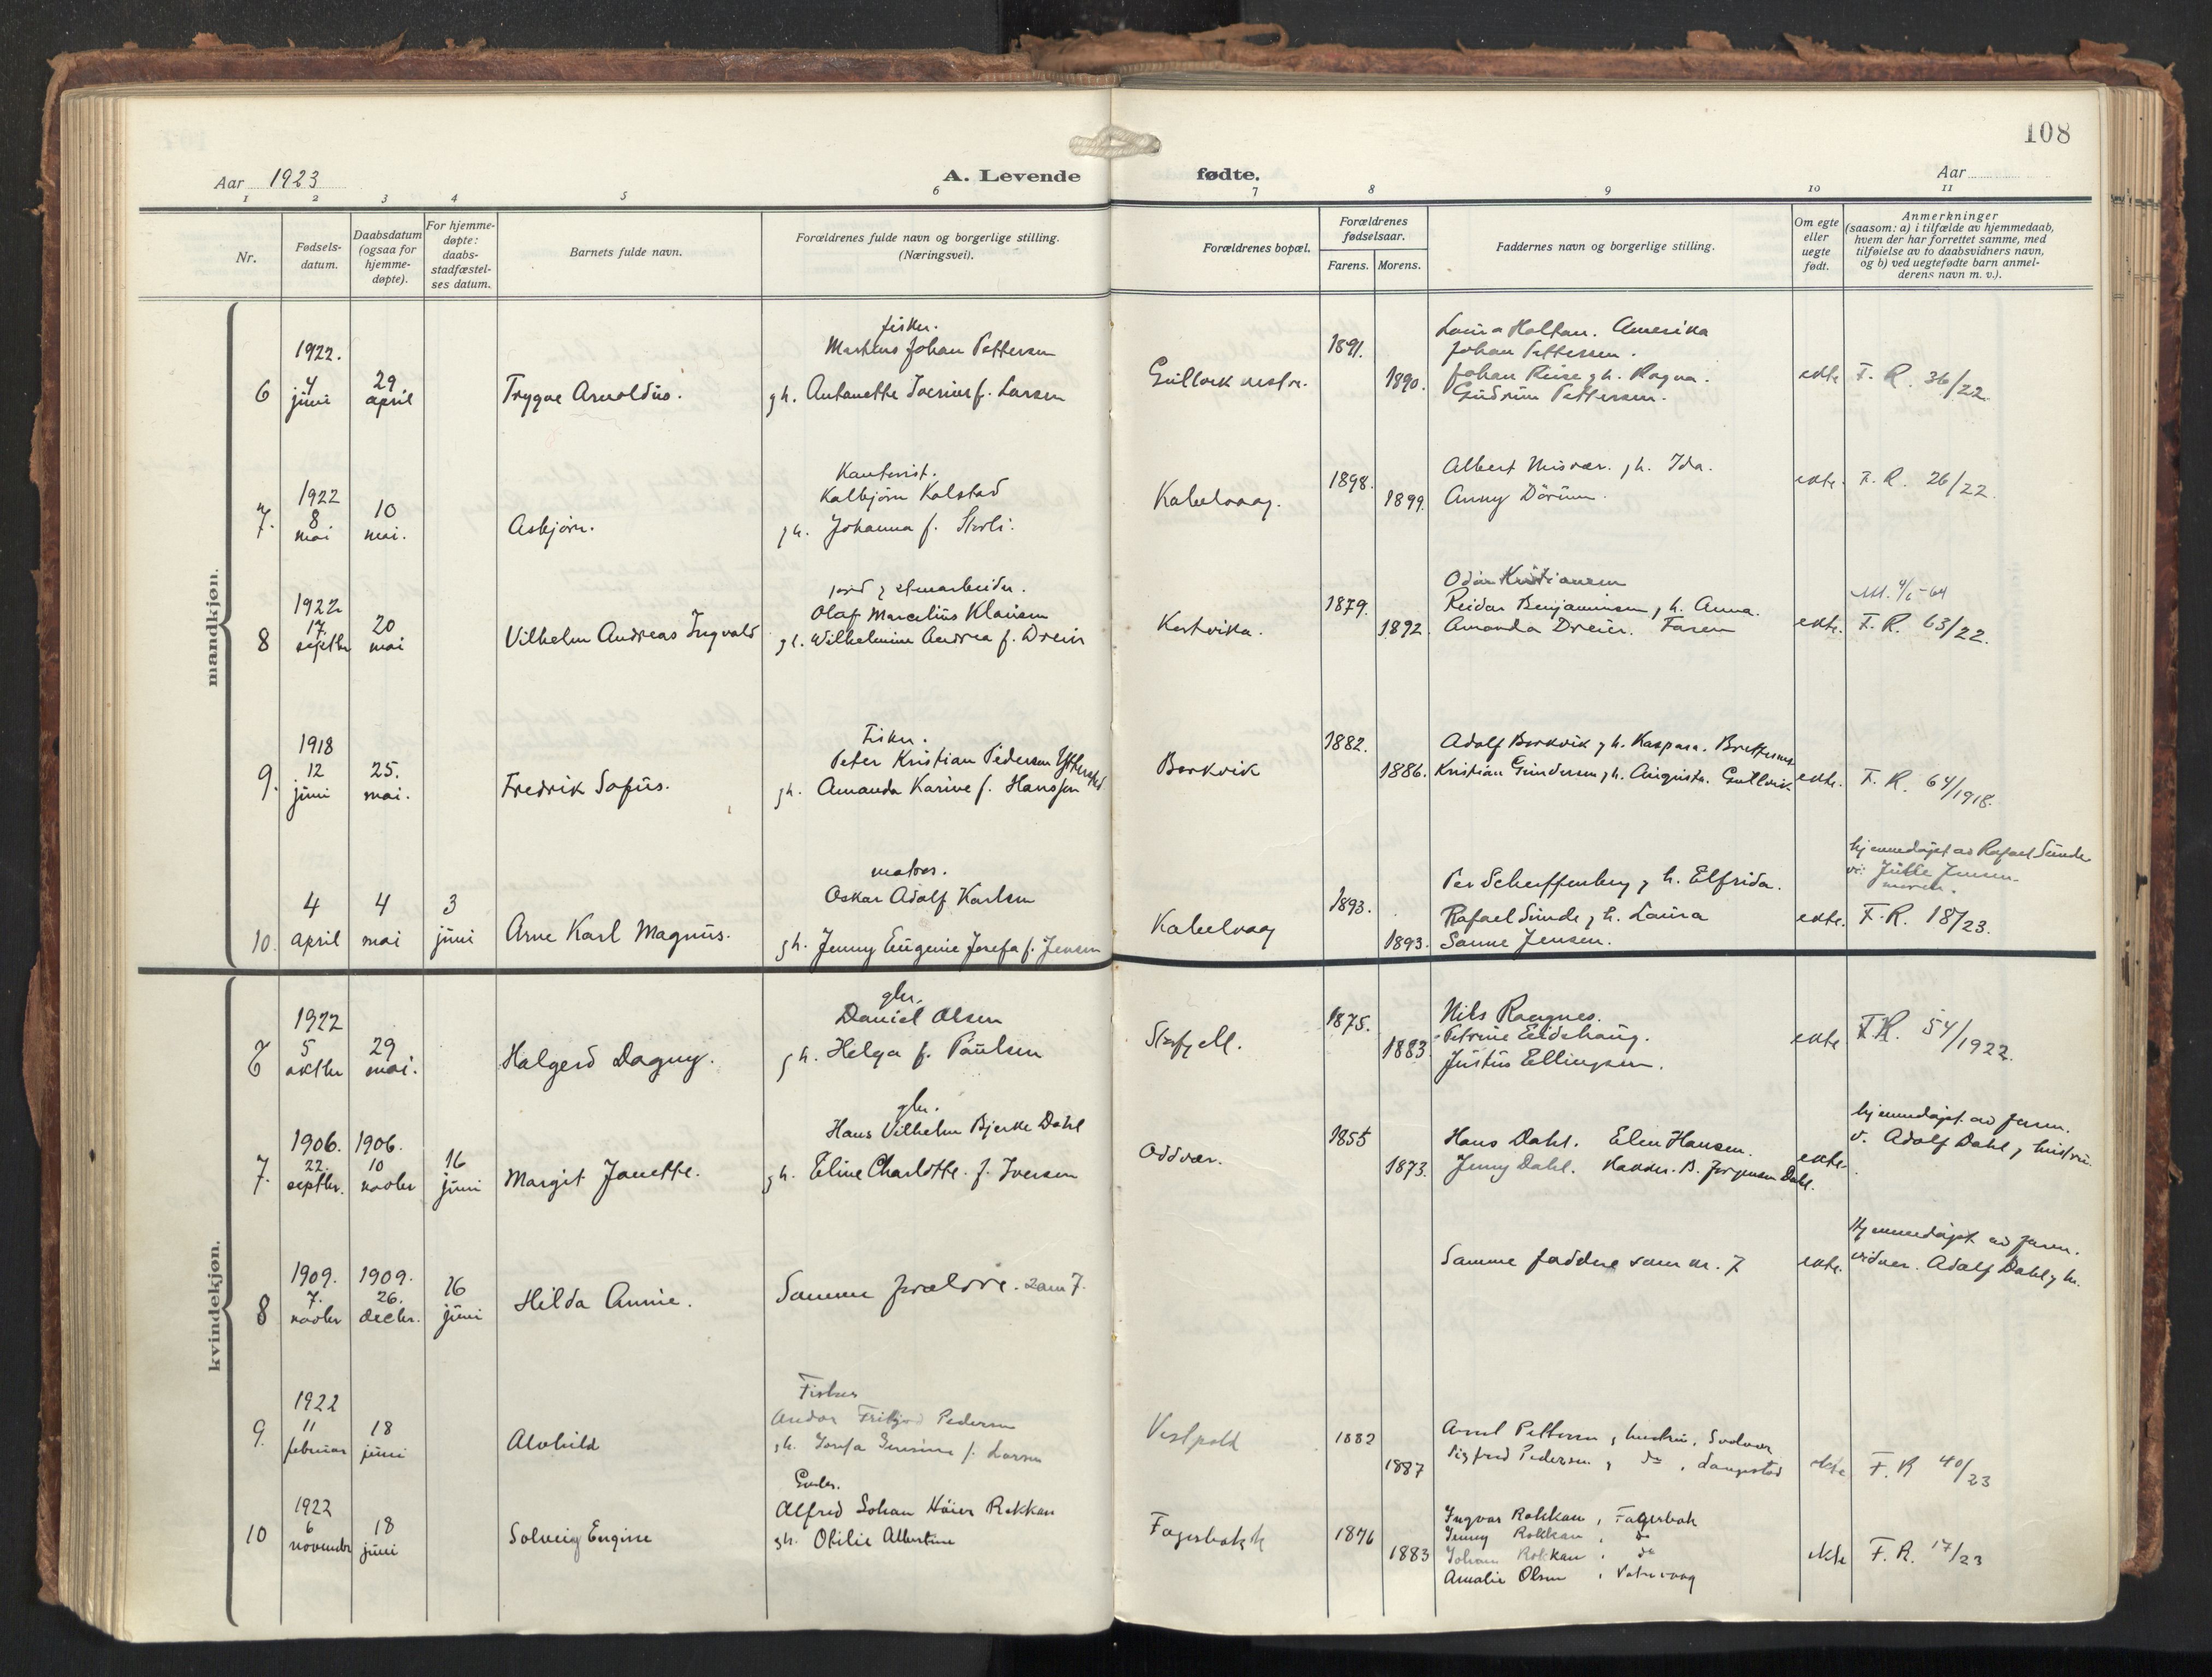 108
Aar 1923
A. Levende
fødte.
Aar
1 2 3 4 5 6 7 8 9 10 11
Nr.
Fødsels-
datum.
Daabsdatum
(ogsaa for
hjemme-
døpte).
For hjemme-
døpte:
daabs-
stadfæstel-
ses datum.
Barnets fulde navn.
Forældrenes fulde navn og borgerlige stilling.
(Næringsvei).
Forældrenes bopæl.
Forældrenes
fødselsaar.
Farens. Morens.
Faddernes navn og borgerlige stilling.
Om egte
eller
uegte
født.
Anmerkninger
(saasom: a) i tilfælde av hjemmedaab,
hvem der har forrettet samme, med
tilføielse av to daabsvidners navn,
og b) ved uegtefødte barn anmel-
derens navn m. v.).
mandkjøn.
6
1922.
4
juni
29
april
Trygve Arnoldus.
fisker.
Johan Pettersen
gh. Antanette f. Larsen
1891.
1890.
Laura Holtan. Amerika
Johan Pettersen.
Johan gh. Ragna.
Gudrun Pettersen.
ekte
F. R. 36/22.
7.
1922
8
mai
10
mai.
Asbjørn.
Kontorist.
Kolbjørn Kolstad
gh. Johanna f. Storli.
Kabelvaag.
1898.
1899.
Albert Misvær. gh. Ida.
Anny Dørum.
ekte.
F. R. 26/22.
8
1922
17.
septbr
20
mai
Vilhelm Andreas Ingvald
Olaf Marcelius Klausen
gh. Wilhelmine Andrea f. Dreier
1879.
1892.
Odin Kristiansen
Reidar Benjaminsen, h. Anna.
Amanda Dreier. Faren
ekte.
F. R. 63/22.
9.
1918
12
juni
25.
mai.
Fredrik Sofus.
Fisker.
Peter Kristian Pedersen
gh. Amanda Karine f. Hanssen
Borkvik
1882.
1886.
Adolf Borkvik gh. Kaspara. Brettesnes
Kristian Gundersen gh. Augusta. Gullvik
ekte.
F. R. 64/1918.
10.
4
april
4
mai
3
juni
Arne Karl Magnus.
matros.
Oskar Adolf Karlsen
gh. Jenny Eugenie Josefa f. Jensen
Kabelvaag
1893.
1893.
Per Scheffenberg, h. Elfrida.
Rafael Sunde, h. Laura
Sanne Jensen.
ekte.
hjemmedøpt av Rafael Sunde
Jensen
F. R. 18/23.
kvindekjøn.
6
1922
5
oktbr
29
mai.
Halgerd Dagny.
gbr.
Daniel Olsen
gh. Helga f. Paulsen
1875.
1883.
Nils
Petrine Eidehaug.
Justus Ellingsen.
ekte
F. R. 54/1922.
7.
1906.
22.
septbr.
1906.
10
novbr
16
juni
Margit Janette.
gbr.
Hans Vilhelm Bjerke Dahl
gh. Eline Charlotte. f. Iversen
Oddvær.
1855
1873.
Hans Dahl. Elen Hansen.
Jenny Dahl. B. Jørgensen Dahl.
ekte.
hjemmedøpt av faren.
v. Adolf Dahl, hustru.
8
1909.
7.
novbr
1909.
26.
decbr.
16
juni
Hilda Annie.
Samme forældre. som 7.
Samme faddere som nr. 7
ekte.
Hjemmedøpt av faren.
vidner. Adolf Dahl, h.
9.
1922
11
februar
18
juni
Alvhild
Fisker
Andor Fritjof Pedersen
gh. Josefa f. Larsen
Vestpold
1882
1887
Pettersen, hustru, Svolvær
Sigfred Pedersen, do, Langstad
ekte
F. R 40/23
10
1922
6
november
18
juni
Solveig Engine
Alfred Johan Høier Rokkan
gh. Otilie Albertine
1876
1883
Ingvar Rokkan, Fagerbak
Jenny Rokkan, do
Johan Rokkan, do
Amalie Olsen,
ekte
F. R. 17/23